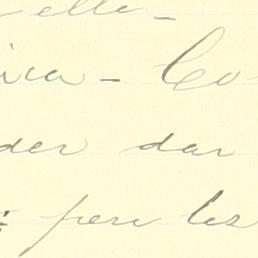 elle_
ica - Co
der dar
pere les